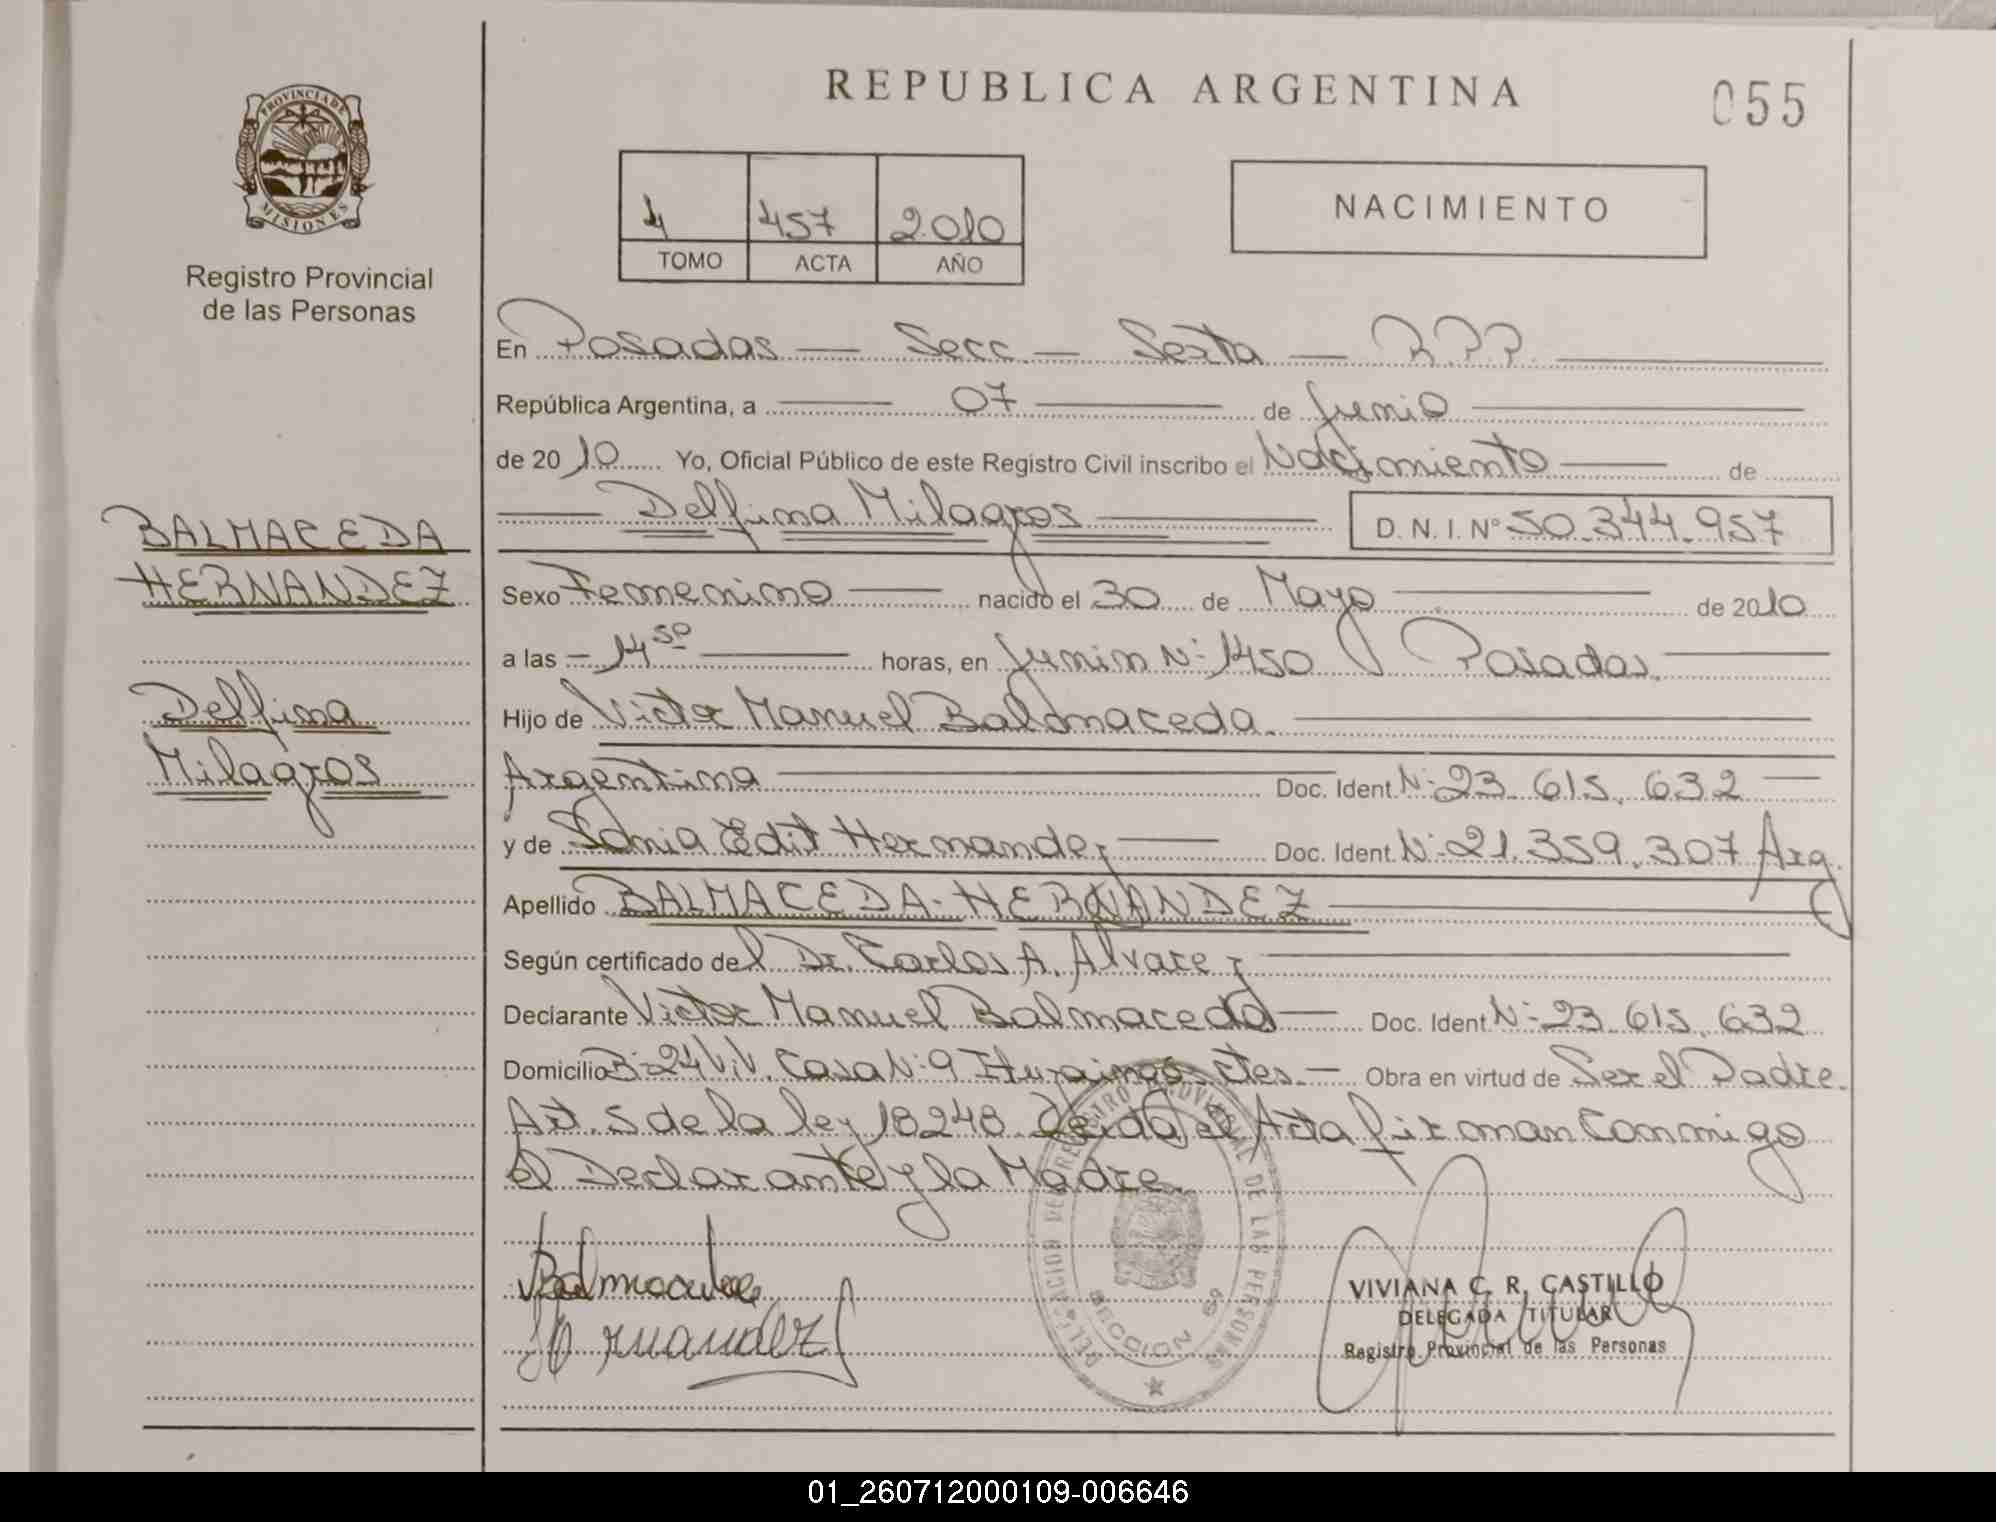 REPUBLICA ARGENTINA
055
PROVINCIA DE
MISIONES
Registro Provincial
de las Personas
4 457 2.010
TOMO ACTA AÑO
NACIMIENTO
En Posadas — Secc — Sexta — R.P.P.
República Argentina, a 07 de Junio
de 2010 Yo, Oficial Público de este Registro Civil inscribo el Nacimiento de
Delfina Milagros D. N. I. Nº 50.344.957
BALMACEDA
HERNANDEZ
Delfina
Milagros
Sexo Femenino nacido el 30 de Mayo de 2010
a las 14 50 horas, en Junin Nº 1450 Posadas
Hijo de Victor Manuel Balmaceda.
Argentina Doc. Ident. Nº 23.615.632
y de Sonia Edit Hernandez Doc. Ident. Nº 21.359.307 Arg.
Apellido BALMACEDA-HERNANDEZ
Según certificado del Dr. Carlos A. Alvarez
Declarante Victor Manuel Balmaceda Doc. Ident. Nº 23.615.632
Domicilio Bº 24 Viv. Casa Nº 9 Ituzaingó Ctes. Obra en virtud de Ser el Padre.
Art. 5 de la ley 18248. Leida el Acta firman Conmigo
el Declarante y la Madre.
Balmaceda
Hernandez
DELEGACION DEL REGISTRO PROVINCIAL DE LAS PERSONAS
SECCION 6ª
VIVIANA C. R. CASTILLO
DELEGADA TITULAR
Registro Provincial de las Personas
01_260712000109-006646